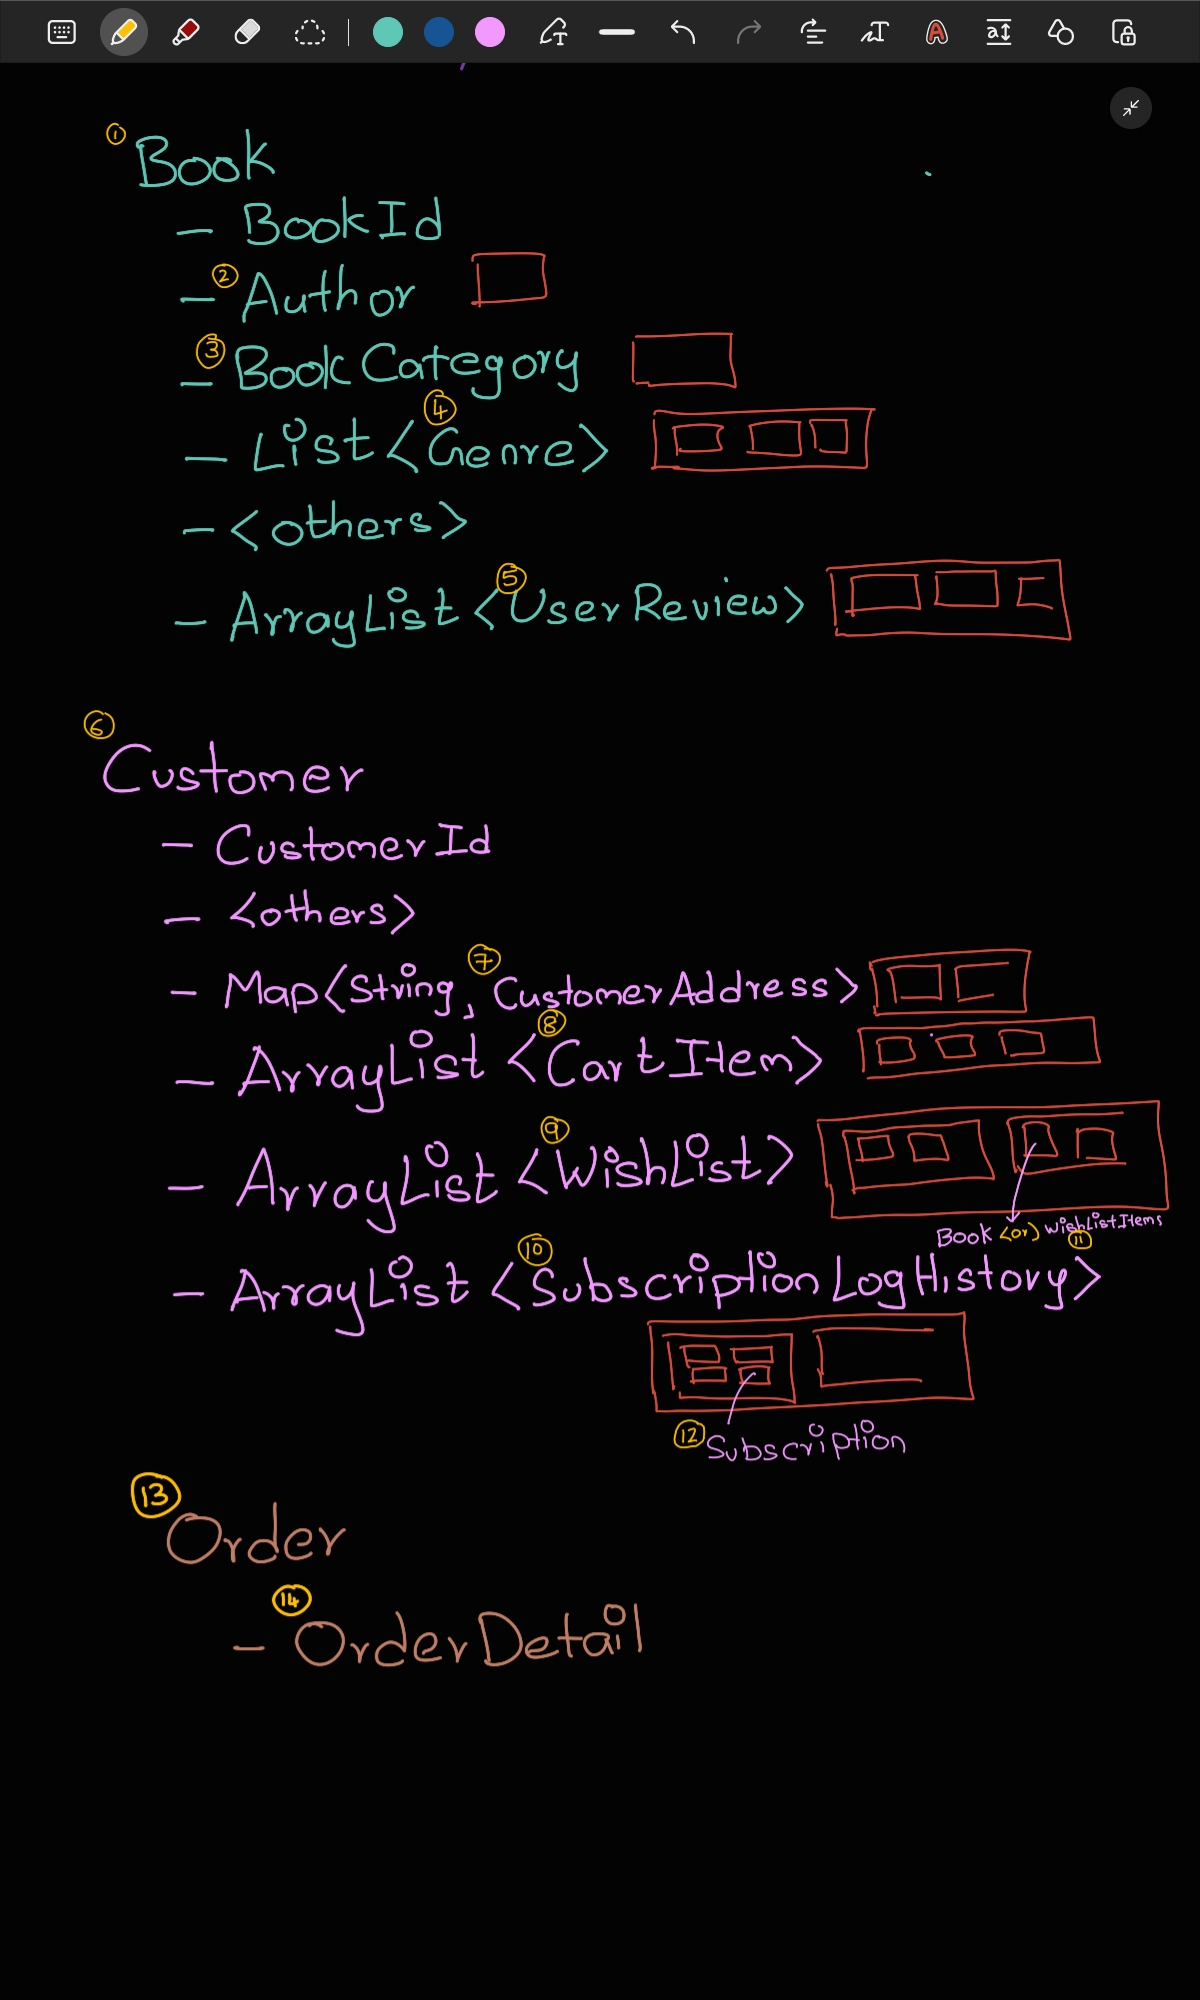 ① Book
- BookId
- ② Author
- ③ BookCategory
- List <④ Genre>
- <others>
- ArrayList <⑤ UserReview>
⑥ Customer
- CustomerId
- <others>
- Map<String, ⑦ CustomerAddress>
- ArrayList <⑧ CartItem>
- ArrayList <⑨ WishList>
Book <or> WishListItems ⑪
- ArrayList <⑩ SubscriptionLogHistory>
⑫ Subscription
⑬ Order
- ⑭ OrderDetail